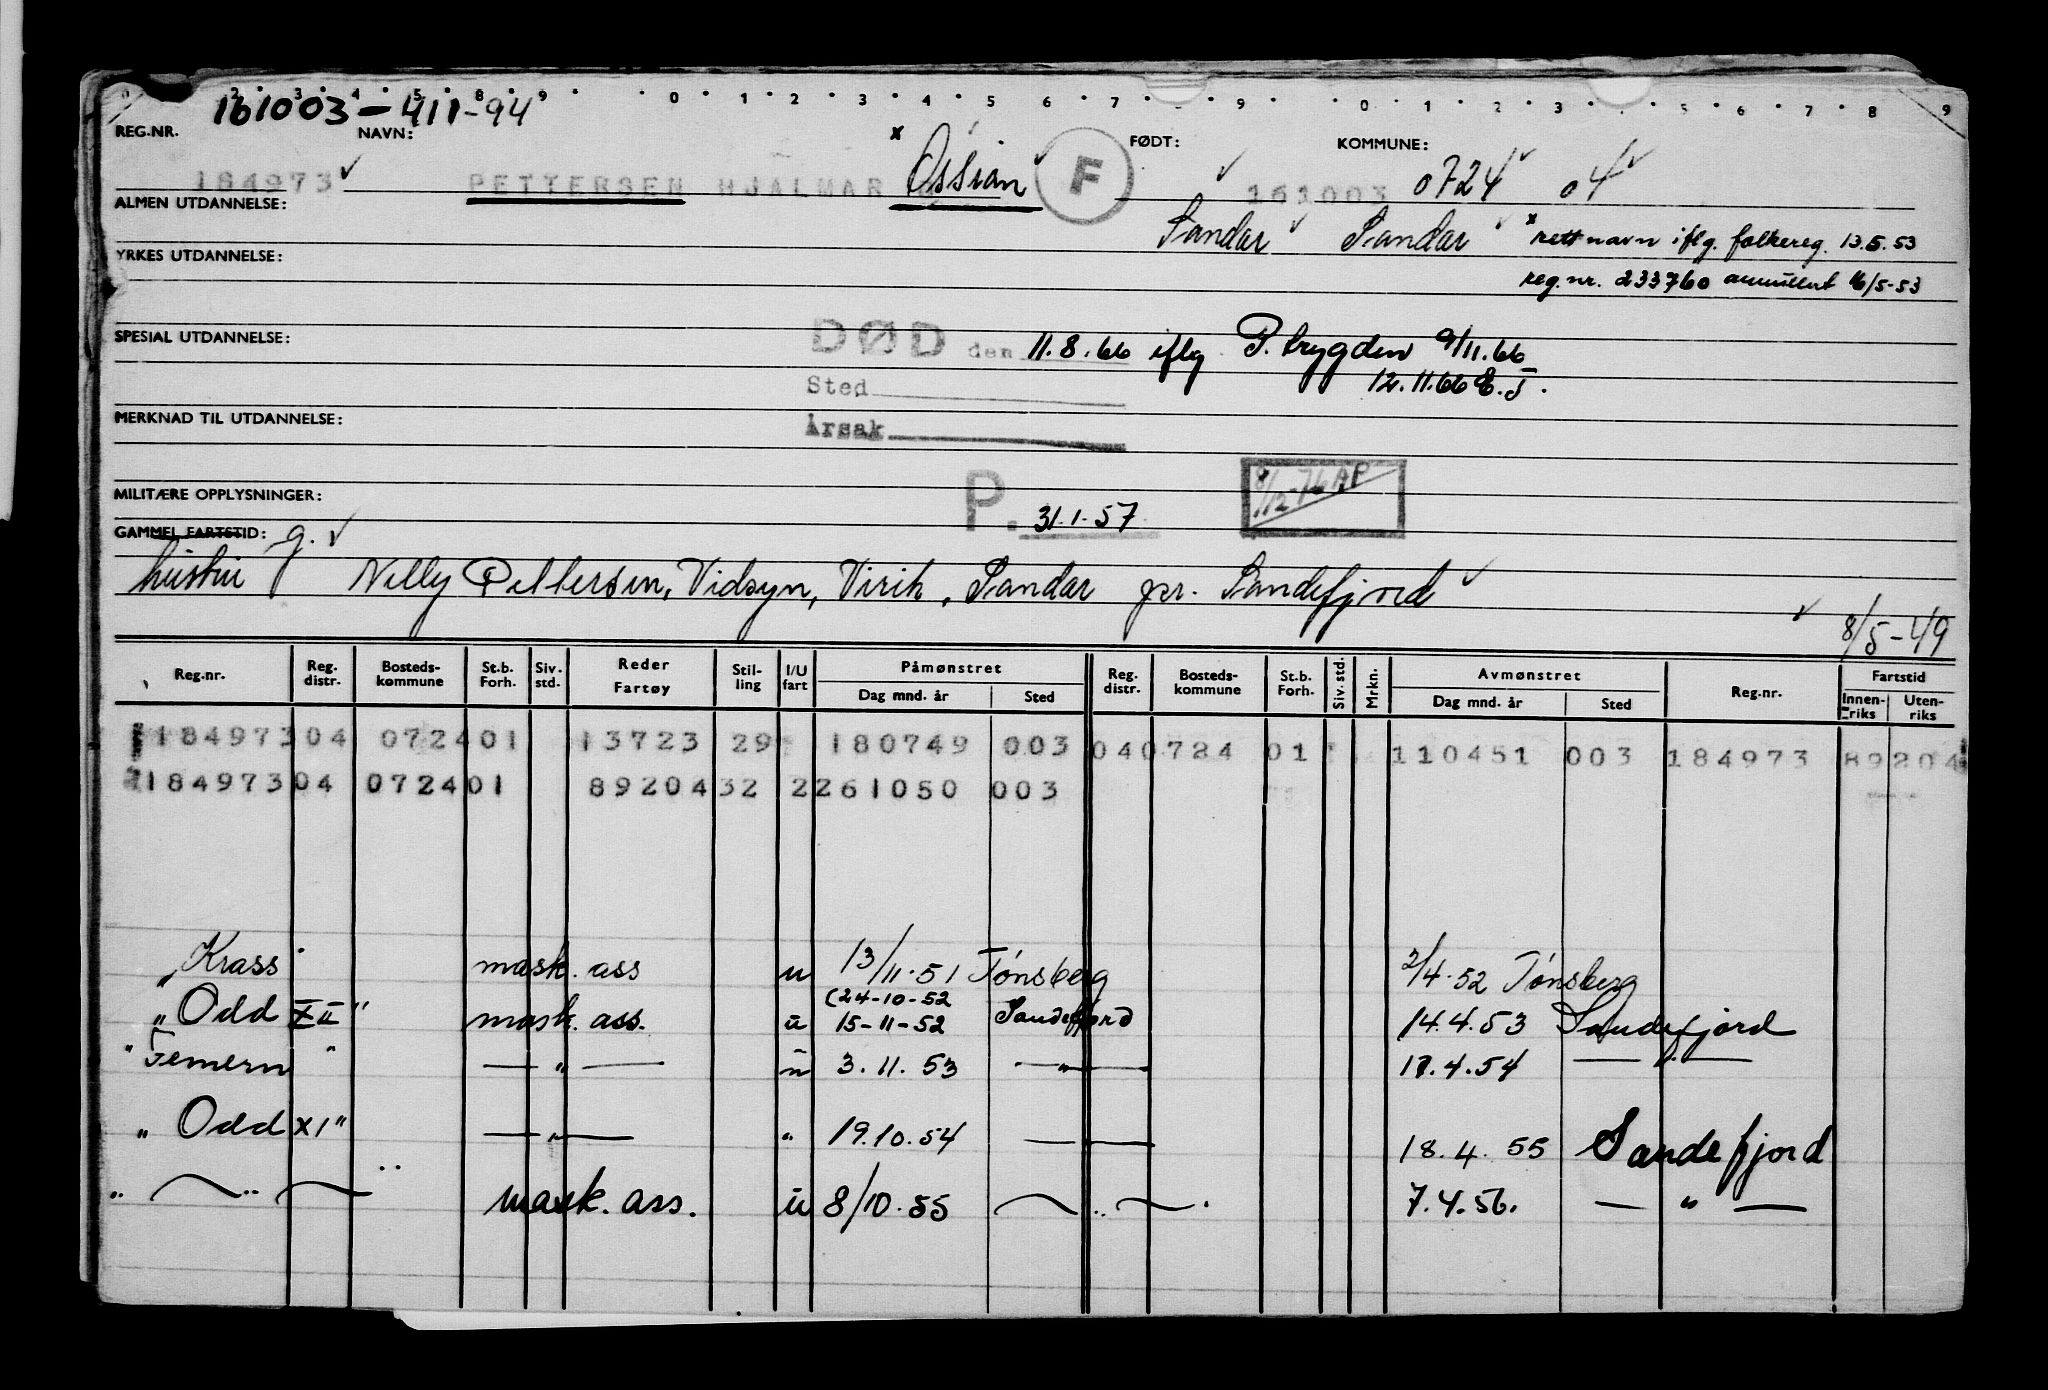 161003-411-94
0 1 2 3 4 5 6 7 8 9 0 1 2 3 4 5 6 7 8 9
REG.NR. NAVN: FØDT: KOMMUNE:
184973 PETTERSEN HJALMAR x Ossian F 161003 0724 04
ALMEN UTDANNELSE:
Sandar Sandar x rett navn iflg. folkereg. 13.5.53
YRKES UTDANNELSE:
reg.nr. 233760 annullert 16/5-53
SPESIAL UTDANNELSE:
DØD den 11.8.66 iflg P.trygden 9/11.66
Sted 12.11.66 E.J.
MERKNAD TIL UTDANNELSE: Årsak
MILITÆRE OPPLYSNINGER: P. 31.1.57 8/12-76 AP
GAMMEL FARTSTID: g.
hustru Nelly Pettersen, Vidsyn, Virik, Sandar pr. Sandefjord
8/5-49
Reg.nr. Reg. distr. Bosteds- kommune St.b. Forh. Siv. std. Reder Fartøy Stil- ling I/U fart Påmønstret Dag mnd. år Sted Reg. distr. Bosteds- kommune St.b. Forh. Siv. std. Mrkn. Avmønstret Dag mnd. år Sted Reg.nr. Fartstid Innen- riks Uten- riks
184973 04 0724 01 13723 29 180749 003 04 0724 01 110451 003 184973 89204
184973 04 0724 01 89204 32 2 261050 003
„Krass mask. ass u 13/11.51 Tønsberg 2/4.52 Tønsberg
(24-10-52
„Odd XII" mask. ass. u 15-11-52 Sandefjord 14.4.53 Sandefjord
"Femern" — " — u 3.11.53 — " — 17.4.54 — " —
„Odd XI" — " — " 19.10.54 — — 18.4.55 Sandefjord
" — " — mask. ass. u 8/10.55 — " — 7.4.56. — " —